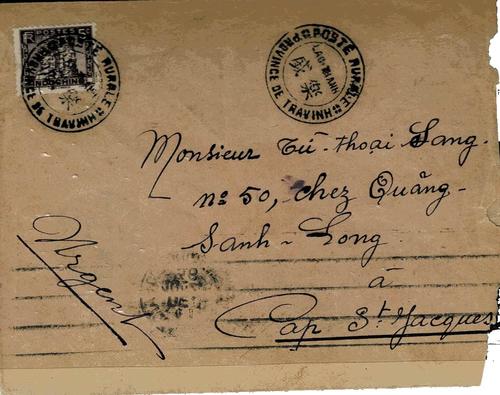 POSTES
INDOCHINE
POSTE RURALE
PROVINCE DE TRAVINH
POSTE RURALE
PROVINCE DE TRAVINH
盛
樂
Monsieur Từ-thoại Sang.
nº 50, chez Quảng-
Sanh-Long
à
Cap St Jacques
Urgent